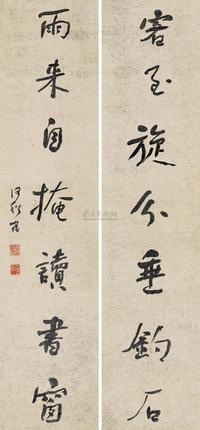 客至旋分垂釣石
雨来自掩讀書窗
何紹基